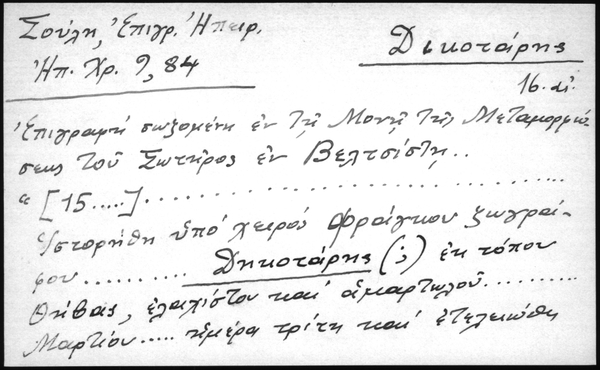 Σούλη, Ἐπιγρ. Ἠπειρ.
Ἠπ. Χρ. 9, 84
Δικοτάρης
16. αἰ.
Ἐπιγραφή σωζομένη ἐν τῇ Μονῇ τῆς Μεταμορφώ-
σεως τοῦ Σωτῆρος ἐν Βελτσίστῃ..
"[15.....]..............................
Ἱστορήθη ὑπό χειρός Φράγκου ζωγρά-
φου.......... Δηκοτάρης (;) ἐκ τόπου
Θήβας, ἐλαχίστου καί ἁμαρτωλοῦ..........
Μαρτίου..... ἡμέρα τρίτη καί ἐτελειώθη